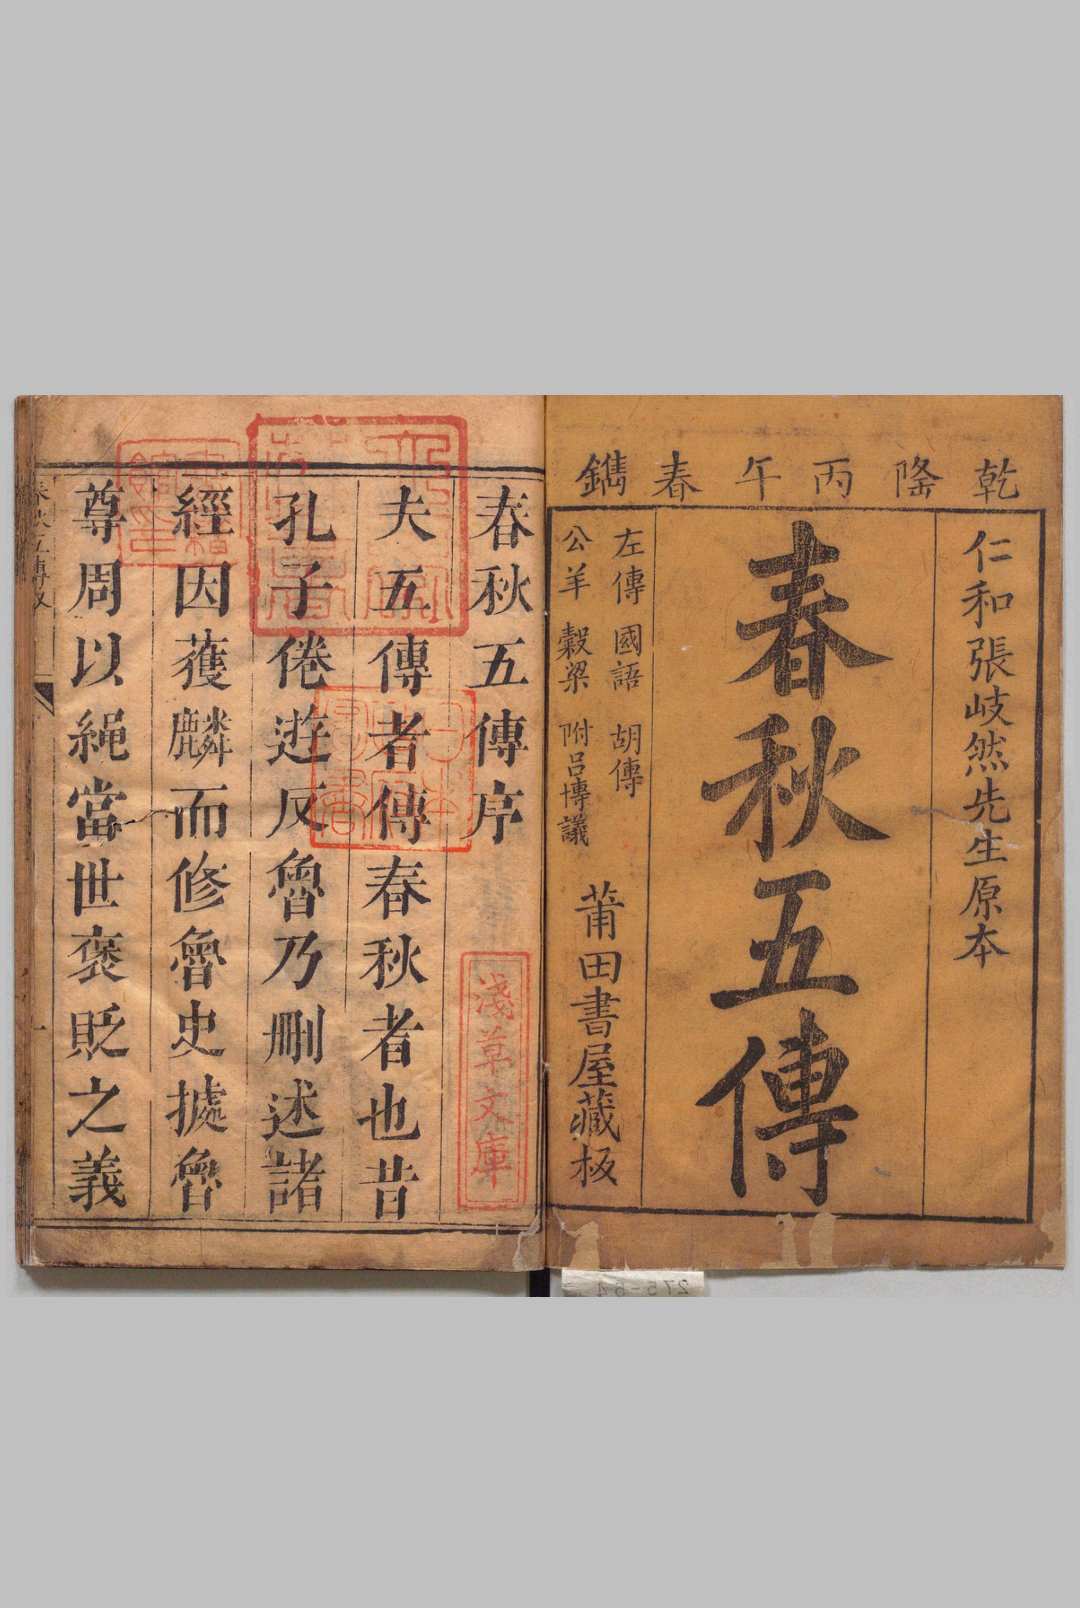 乾隆丙午春鐫
仁和張岐然先生原本
春秋五傳
左傳 國語 胡傳
公羊 穀梁 附呂博議
莆田書屋藏板
春秋五傳序
夫五傳者傳春秋者也昔
孔子倦遊反魯乃刪述諸
經因獲麟而修魯史據魯
尊周以繩當世褒貶之義
淺草文庫
275-64